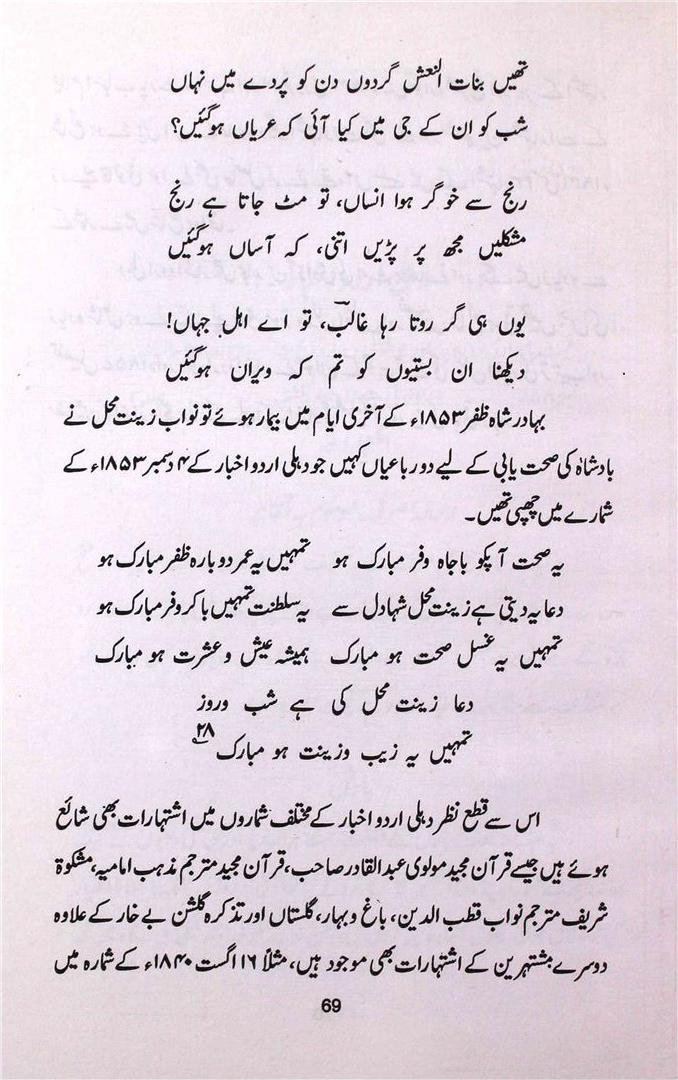 تھیں بنات النعش گردوں دن کو پردے میں نہاں
شب کو ان کے جی میں کیا آئی کہ عریاں ہوگئیں؟
رنج سے خوگر ہوا انساں، تو مٹ جاتا ہے رنج
مشکلیں مجھ پر پڑیں اتنی، کہ آساں ہوگئیں
یوں ہی گر روتا رہا غالبؔ، تو اے اہلِ جہاں!
دیکھنا ان بستیوں کو تم کہ ویراں ہوگئیں
بہادر شاہ ظفر ۱۸۵۳ء کے آخری ایام میں بیمار ہوئے تو نواب زینت محل نے
بادشاہ کی صحت یابی کے لیے دو رباعیاں کہیں جو دہلی اردو اخبار کے ۴ دسمبر ۱۸۵۳ء کے
شمارے میں چھپی تھیں۔
یہ صحت آپکو باجاہ وفر مبارک ہو تمہیں یہ عمر دوبارہ ظفر مبارک ہو
دعا یہ دیتی ہے زینت محل شہا دل سے یہ سلطنت تمہیں باکر وفر مبارک ہو
تمہیں یہ غسل صحت ہو مبارک ہمیشہ عیش و عشرت ہو مبارک
دعا زینت محل کی ہے شب وروز
تمہیں یہ زیب وزینت ہو مبارک ۲۸
اس سے قطع نظر دہلی اردو اخبار کے مختلف شماروں میں اشتہارات بھی شائع
ہوئے ہیں جیسے قرآن مجید مولوی عبدالقادر صاحب، قرآن مجید مترجم مذہب امامیہ، مشکوٰۃ
شریف مترجم نواب قطب الدین، باغ و بہار، گلستاں اور تذکرہ گلشن بے خار کے علاوہ
دوسرے مشتہرین کے اشتہارات بھی موجود ہیں، مثلاً ۱۶ اگست ۱۸۴۰ء کے شمارہ میں
69